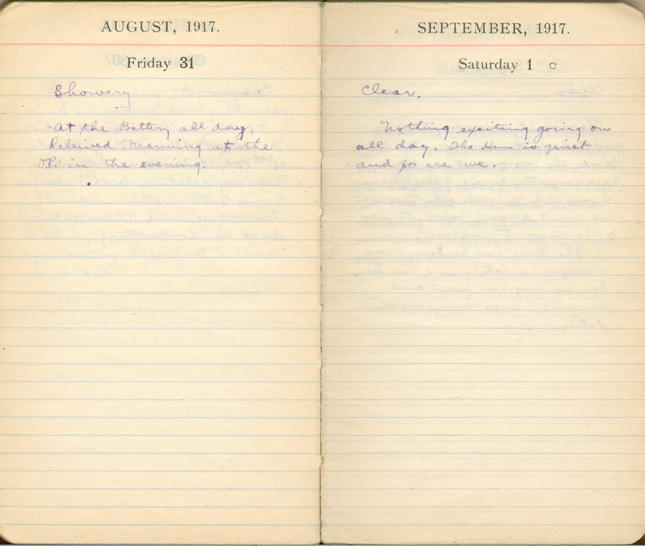 AUGUST, 1917.
Friday 31
Showery
At the Battery all day.
Relieved Manning at the
OP. in the evening.
SEPTEMBER, 1917.
Saturday 1
Clear.
Nothing exciting going on
all day. The Hun is quiet
and so are we.